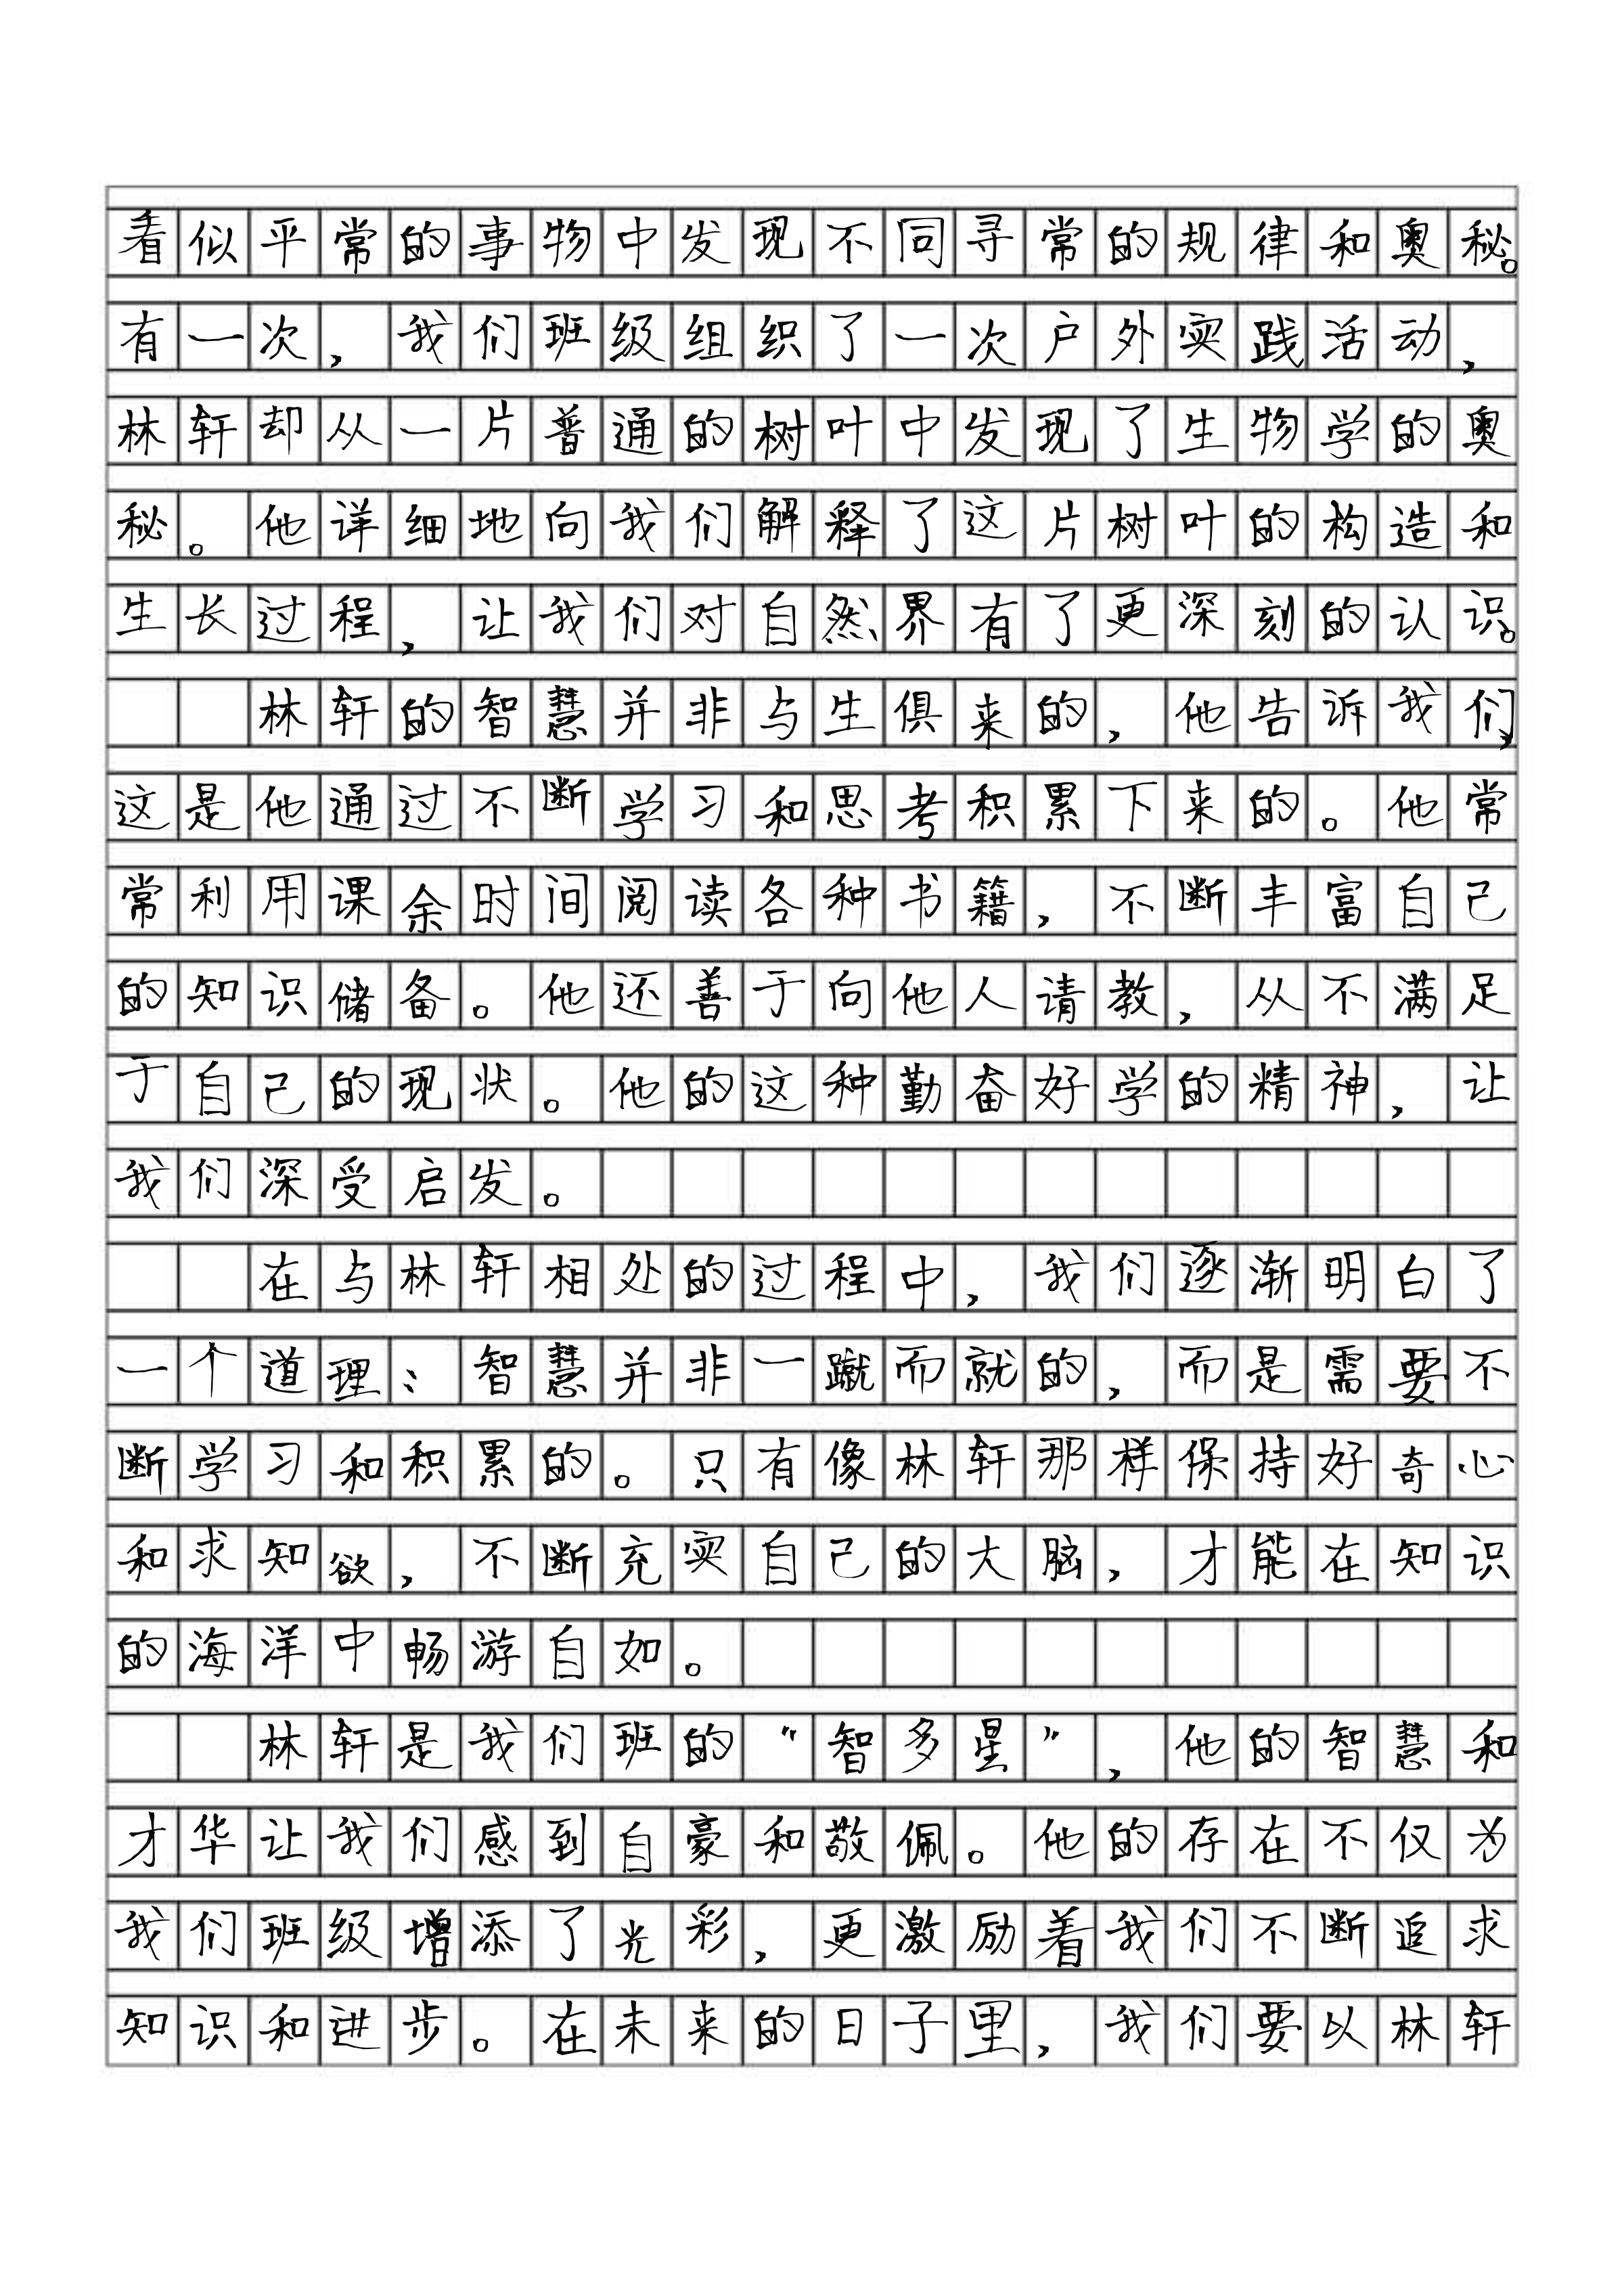 看似平常的事物中发现不同寻常的规律和奥秘。
有一次，我们班级组织了一次户外实践活动，
林轩却从一片普通的树叶中发现了生物学的奥
秘。他详细地向我们解释了这片树叶的构造和
生长过程，让我们对自然界有了更深刻的认识。
林轩的智慧并非与生俱来的，他告诉我们，
这是他通过不断学习和思考积累下来的。他常
常利用课余时间阅读各种书籍，不断丰富自己
的知识储备。他还善于向他人请教，从不满足
于自己的现状。他的这种勤奋好学的精神，让
我们深受启发。
在与林轩相处的过程中，我们逐渐明白了
一个道理：智慧并非一蹴而就的，而是需要不
断学习和积累的。只有像林轩那样保持好奇心
和求知欲，不断充实自己的大脑，才能在知识
的海洋中畅游自如。
林轩是我们班的“智多星”，他的智慧和
才华让我们感到自豪和敬佩。他的存在不仅为
我们班级增添了光彩，更激励着我们不断追求
知识和进步。在未来的日子里，我们要以林轩